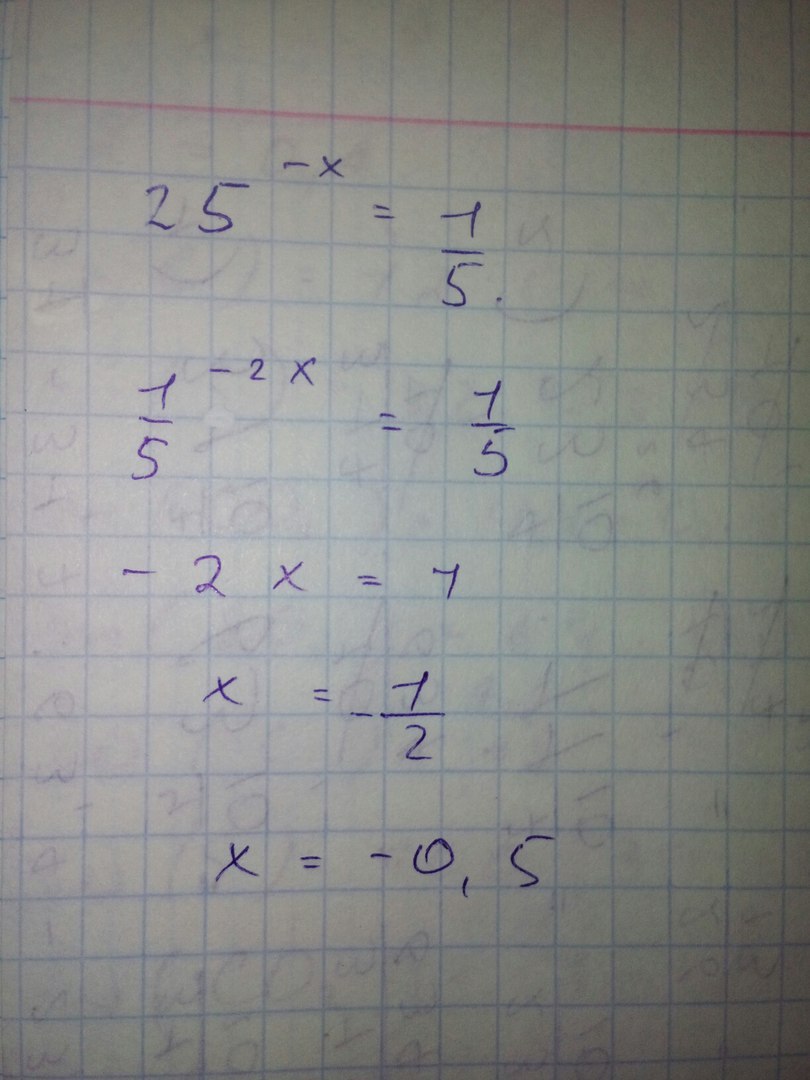 25^{-x} = 1/5.
1/5^{-2x} = 1/5
-2x = 1
x = -1/2
x = -0,5